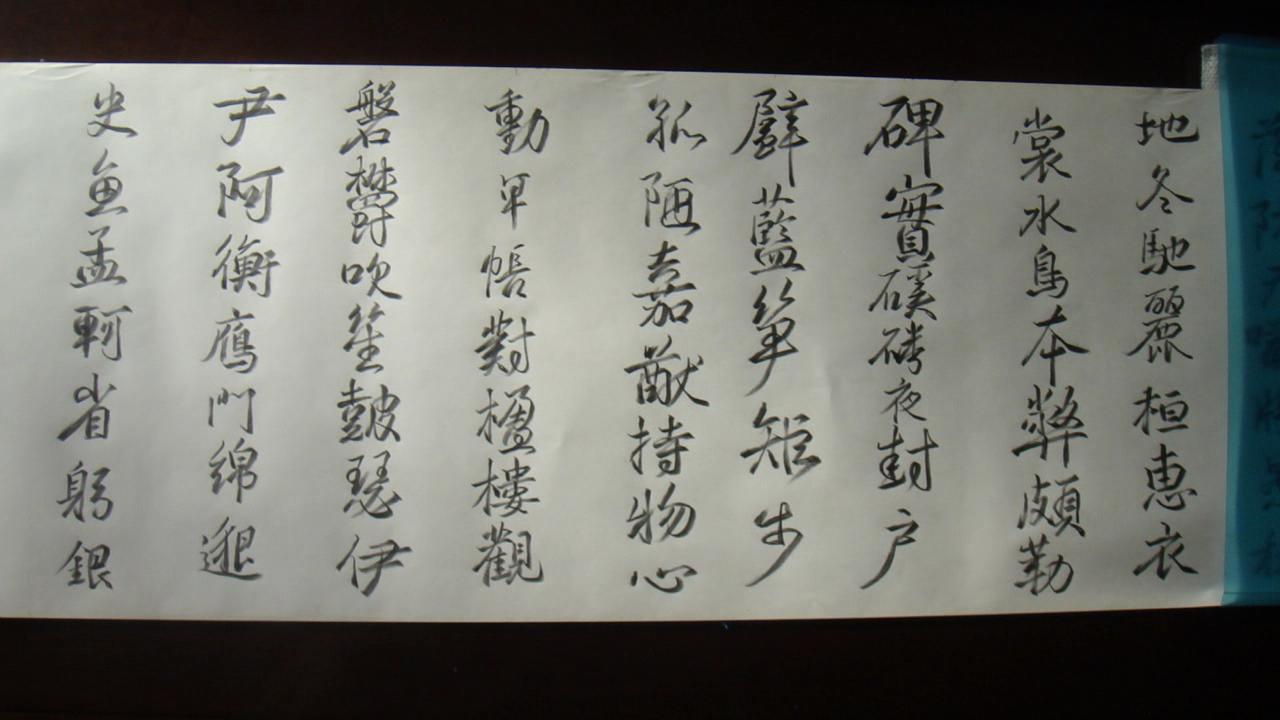 地冬馳麗桓惠衣
裳水鳥本弊頗勒
碑實磻磚夜封戶
躃藍筆矩步
孤陋嘉猷持物心
動早帳對楹樓觀
磐鬱吹笙鼓瑟伊
尹阿衡鴈門綿邈
史魚孟軻省躬銀